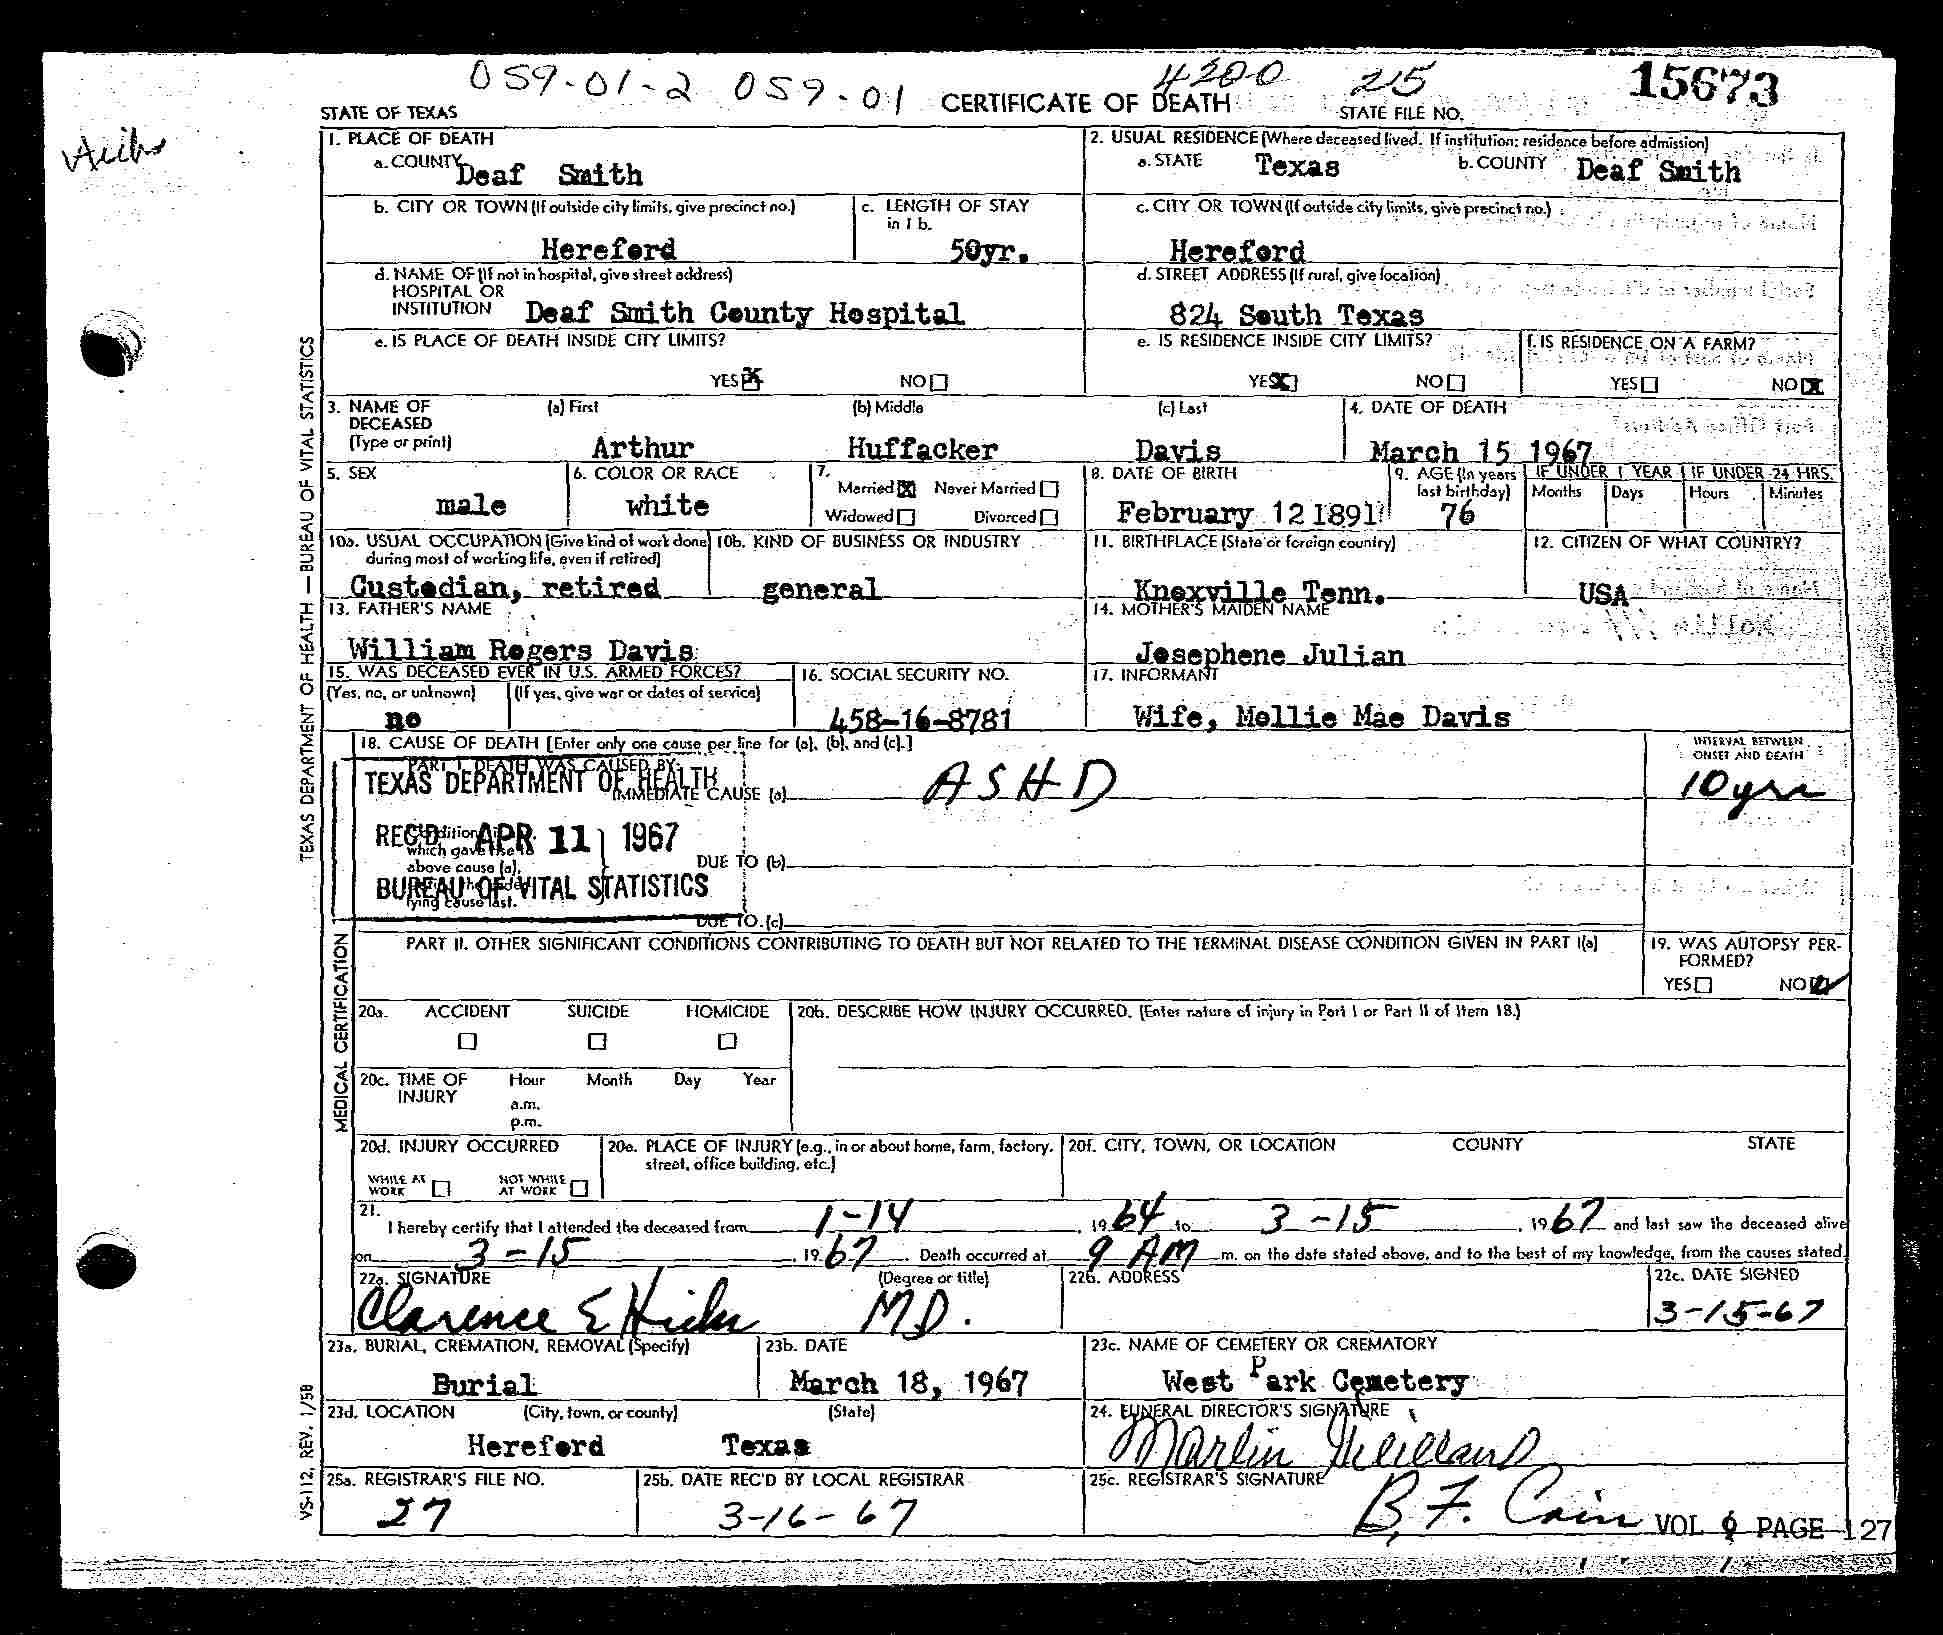 059-01-2 059-01 4200 215 15673
STATE OF TEXAS CERTIFICATE OF DEATH STATE FILE NO.
1. PLACE OF DEATH
a. COUNTY Deaf Smith
2. USUAL RESIDENCE (Where deceased lived. If institution: residence before admission)
a. STATE Texas b. COUNTY Deaf Smith
b. CITY OR TOWN (If outside city limits, give precinct no.)
Hereford
c. LENGTH OF STAY
in 1 b.
50yr.
c. CITY OR TOWN (If outside city limits, give precinct no.)
Hereford
d. NAME OF (If not in hospital, give street address)
HOSPITAL OR
INSTITUTION Deaf Smith County Hospital
d. STREET ADDRESS (If rural, give location)
824 South Texas
e. IS PLACE OF DEATH INSIDE CITY LIMITS?
YES NO
e. IS RESIDENCE INSIDE CITY LIMITS?
YES NO
f. IS RESIDENCE ON A FARM?
YES NO
3. NAME OF (a) First (b) Middle (c) Last
DECEASED
(Type or print) Arthur Huffacker Davis
4. DATE OF DEATH
March 15 1967
5. SEX
male
6. COLOR OR RACE
white
7.
Married Never Married
Widowed Divorced
8. DATE OF BIRTH
February 12 1891
9. AGE (In years
last birthday)
76
IF UNDER 1 YEAR IF UNDER 24 HRS.
Months Days Hours Minutes
10a. USUAL OCCUPATION (Give kind of work done
during most of working life, even if retired)
Custodian, retired
10b. KIND OF BUSINESS OR INDUSTRY
general
11. BIRTHPLACE (State or foreign country)
Knoxville Tenn.
12. CITIZEN OF WHAT COUNTRY?
USA
13. FATHER'S NAME
William Rogers Davis
14. MOTHER'S MAIDEN NAME
Josephene Julian
15. WAS DECEASED EVER IN U.S. ARMED FORCES?
(Yes, no, or unknown) (If yes, give war or dates of service)
no
16. SOCIAL SECURITY NO.
458-16-8781
17. INFORMANT
Wife, Mollie Mae Davis
18. CAUSE OF DEATH [Enter only one cause per line for (a), (b), and (c).]
INTERVAL BETWEEN
ONSET AND DEATH
PART I. DEATH WAS CAUSED BY:
IMMEDIATE CAUSE (a) ASHD 10 yrs
TEXAS DEPARTMENT OF HEALTH
REC'D APR 11 1967
BUREAU OF VITAL STATISTICS
which gave rise to
above cause (a),
lying cause last.
DUE TO (b)
DUE TO (c)
PART II. OTHER SIGNIFICANT CONDITIONS CONTRIBUTING TO DEATH BUT NOT RELATED TO THE TERMINAL DISEASE CONDITION GIVEN IN PART I(a)
19. WAS AUTOPSY PER-
FORMED?
YES NO
20a. ACCIDENT SUICIDE HOMICIDE
20b. DESCRIBE HOW INJURY OCCURRED. (Enter nature of injury in Part I or Part II of Item 18.)
20c. TIME OF Hour Month Day Year
INJURY a.m.
p.m.
20d. INJURY OCCURRED
WHILE AT
WORK
NOT WHILE
AT WORK
20e. PLACE OF INJURY (e.g., in or about home, farm, factory,
street, office building, etc.)
20f. CITY, TOWN, OR LOCATION COUNTY STATE
21.
I hereby certify that I attended the deceased from 1-14, 1964 to 3-15, 1967 and last saw the deceased alive
on 3-15, 1967. Death occurred at 9 AM m. on the date stated above, and to the best of my knowledge, from the causes stated.
22a. SIGNATURE (Degree or title)
Clarence E Hicks M.D.
22b. ADDRESS
22c. DATE SIGNED
3-15-67
23a. BURIAL, CREMATION, REMOVAL (Specify)
Burial
23b. DATE
March 18, 1967
23c. NAME OF CEMETERY OR CREMATORY
West Park Cemetery
23d. LOCATION (City, town, or county) (State)
Hereford Texas
24. FUNERAL DIRECTOR'S SIGNATURE
Marlin Gililland
25a. REGISTRAR'S FILE NO.
27
25b. DATE REC'D BY LOCAL REGISTRAR
3-16-67
25c. REGISTRAR'S SIGNATURE
B. F. Cain
VOL 9 PAGE 127
TEXAS DEPARTMENT OF HEALTH — BUREAU OF VITAL STATISTICS
MEDICAL CERTIFICATION
VS-112, REV. 1/58